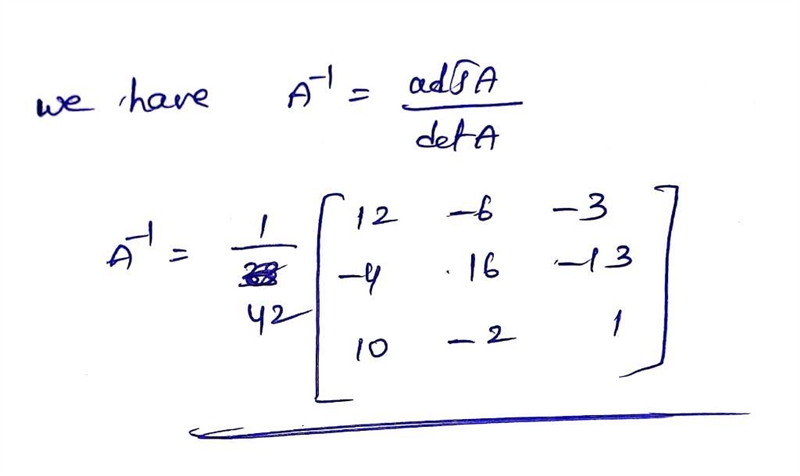 we have A⁻¹ = adjA / detA
A⁻¹ = 1 / 42 [ 12 -6 -3
-4 16 -13
10 -2 1 ]